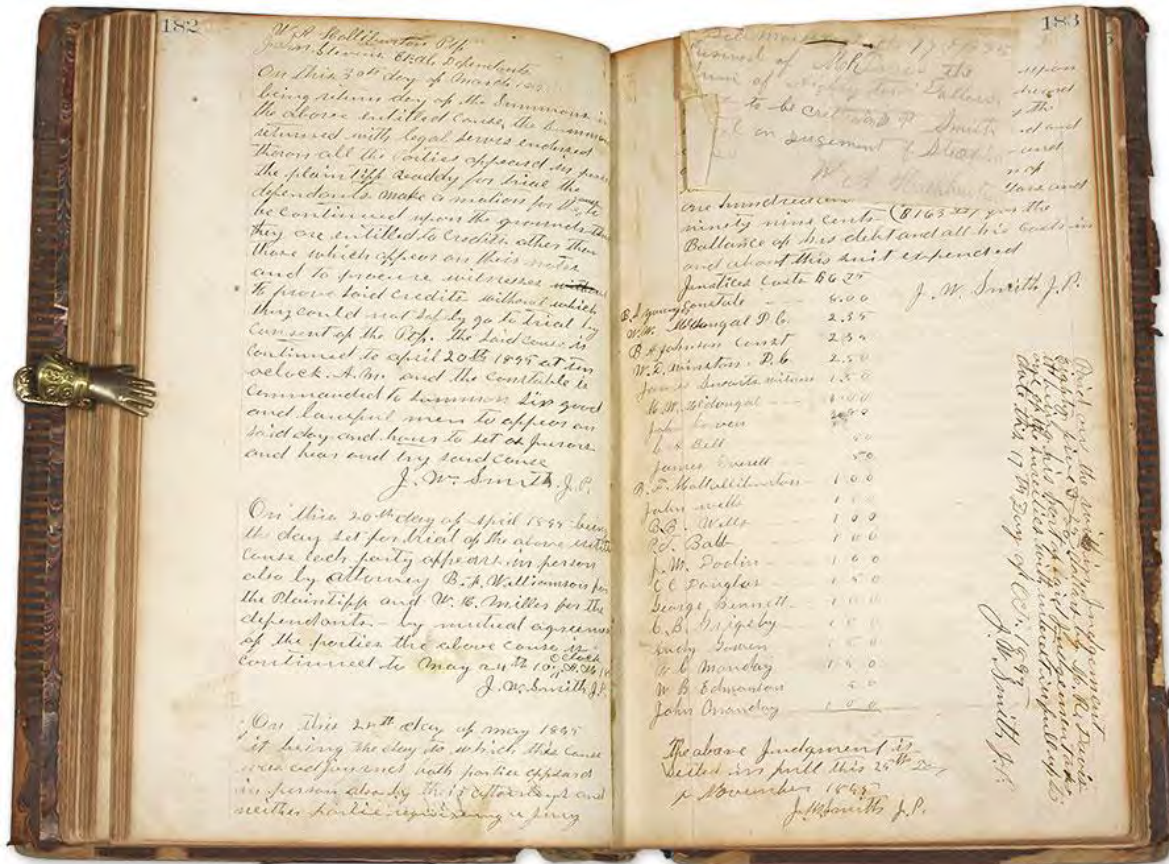 182
W. A. Hallibuton Plf
John Stevens Et Al Defendants
On this 30th day of March 1895
being return day of the Summons in
the above entitled cause, the Summons
returned with legal servis endorsed
theron all the parties appeared in person
the plaintiff readdy for trial the
defendants make a motion for to
be continued upon the grounds that
they are entitled to credits other than
those which appear on their notes
and to procure witnesses
to prove said credits without which
they could not safely go to trial by
consent of the Plf. the said cause is
continued to april 20th 1895 at ten
oclock. A.M. and the Constable is
commanded to summon six good
and lawful men to appear on
said day and hour to set as Jurors
and hear and try said cause
J. W. Smith J.P.
On this 20th day of April 1895 being
the day set for trial of the above entitled
cause each party appears in person
also by attorney B. F. Williamson for
the Plaintiff and W. H. Miller for the
defendants - by mutual agreement
of the parties the above cause is
continued to May 24th 10 oclock A.M.
J. W. Smith J.P.
On this 24th day of may 1895
it being the day to which this cause
was adjourned both partie appeard
in person also by their attorneys and
neither partie requireing a jury
183
received of the
sum of eighty two Dollars
to be credited Smith
on Jugement
one hundred
ninety nine cents ($163 99) for the
Ballance of his debt and all his costs in
and about this suit expended
Justices Costs $6.75
J. W. Smith J.P.
Constable 8.00
W. W. McDougal D.C. 2.35
B. A. Johnson Const 2.35
W. D. Winston D.C. 2.50
James witness 1.50
M. W. McDougal 1.00
John
Bell 50
James Everett 50
B. F. Hallliburton 1 00
John Wells 1 00
B. B. Wells 1 00
Ball 1 00
J. M. Doolin 1 00
C C Douglas 1 50
George Bennett 1 00
C. B. Grigsby 1 50
Gowen 1 50
W C Manday 1 50
W B Edmanson 50
John Manday 1 00
The above Judgment is
settled in full this 25th Day
of November 1895
J. W. Smith J.P.
Paid on the within Judgement
eighty five Dollars by
which is his part of said Judgement
the sureties
date this 17th Day of Oct. 1895
J. W. Smith J.P.